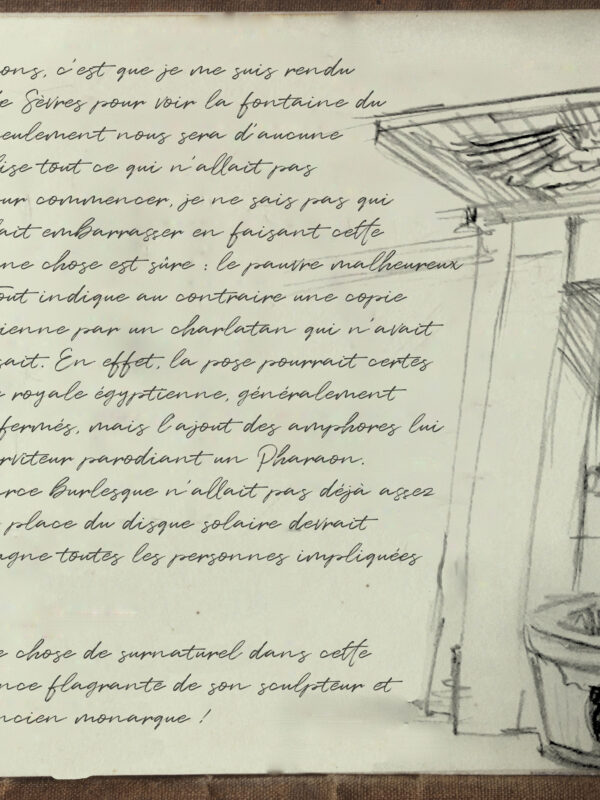 ons, c'est que je me suis rendu
e Sèvres pour voir la fontaine du
seulement nous sera d'aucune
lise tout ce qui n'allait pas
ur commencer, je ne sais pas qui
ait embarrasser en faisant cette
ne chose est sûre : le pauvre malheureux
out indique au contraire une copie
ienne par un charlatan qui n'avait
sait. En effet, la pose pourrait certes
e royale égyptienne, généralement
fermés, mais l'ajout des amphores lui
rviteur parodiant un Pharaon.
arce burlesque n'allait pas déjà assez
place du disque solaire devrait
agne toutes les personnes impliquées
e chose de surnaturel dans cette
ence flagrante de son sculpteur et
ncien monarque !